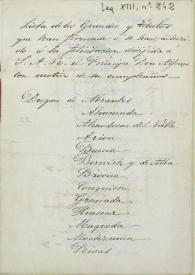 Leg. XIII, nº 242
Lista de los Grandes y Títulos
que han firmado ó se han adherido
á la felicitacion dirigida á
S. A. R. el Príncipe Don Alfonso
con motivo de su cumpleaños.
Duques de Abrantes
Ahumada
Almodovar del Valle
Arion
Baena
Berwick y de Alba
Bivona
Conquista
Granada
Huescar
Maqueda
Moctezuma
Rivas